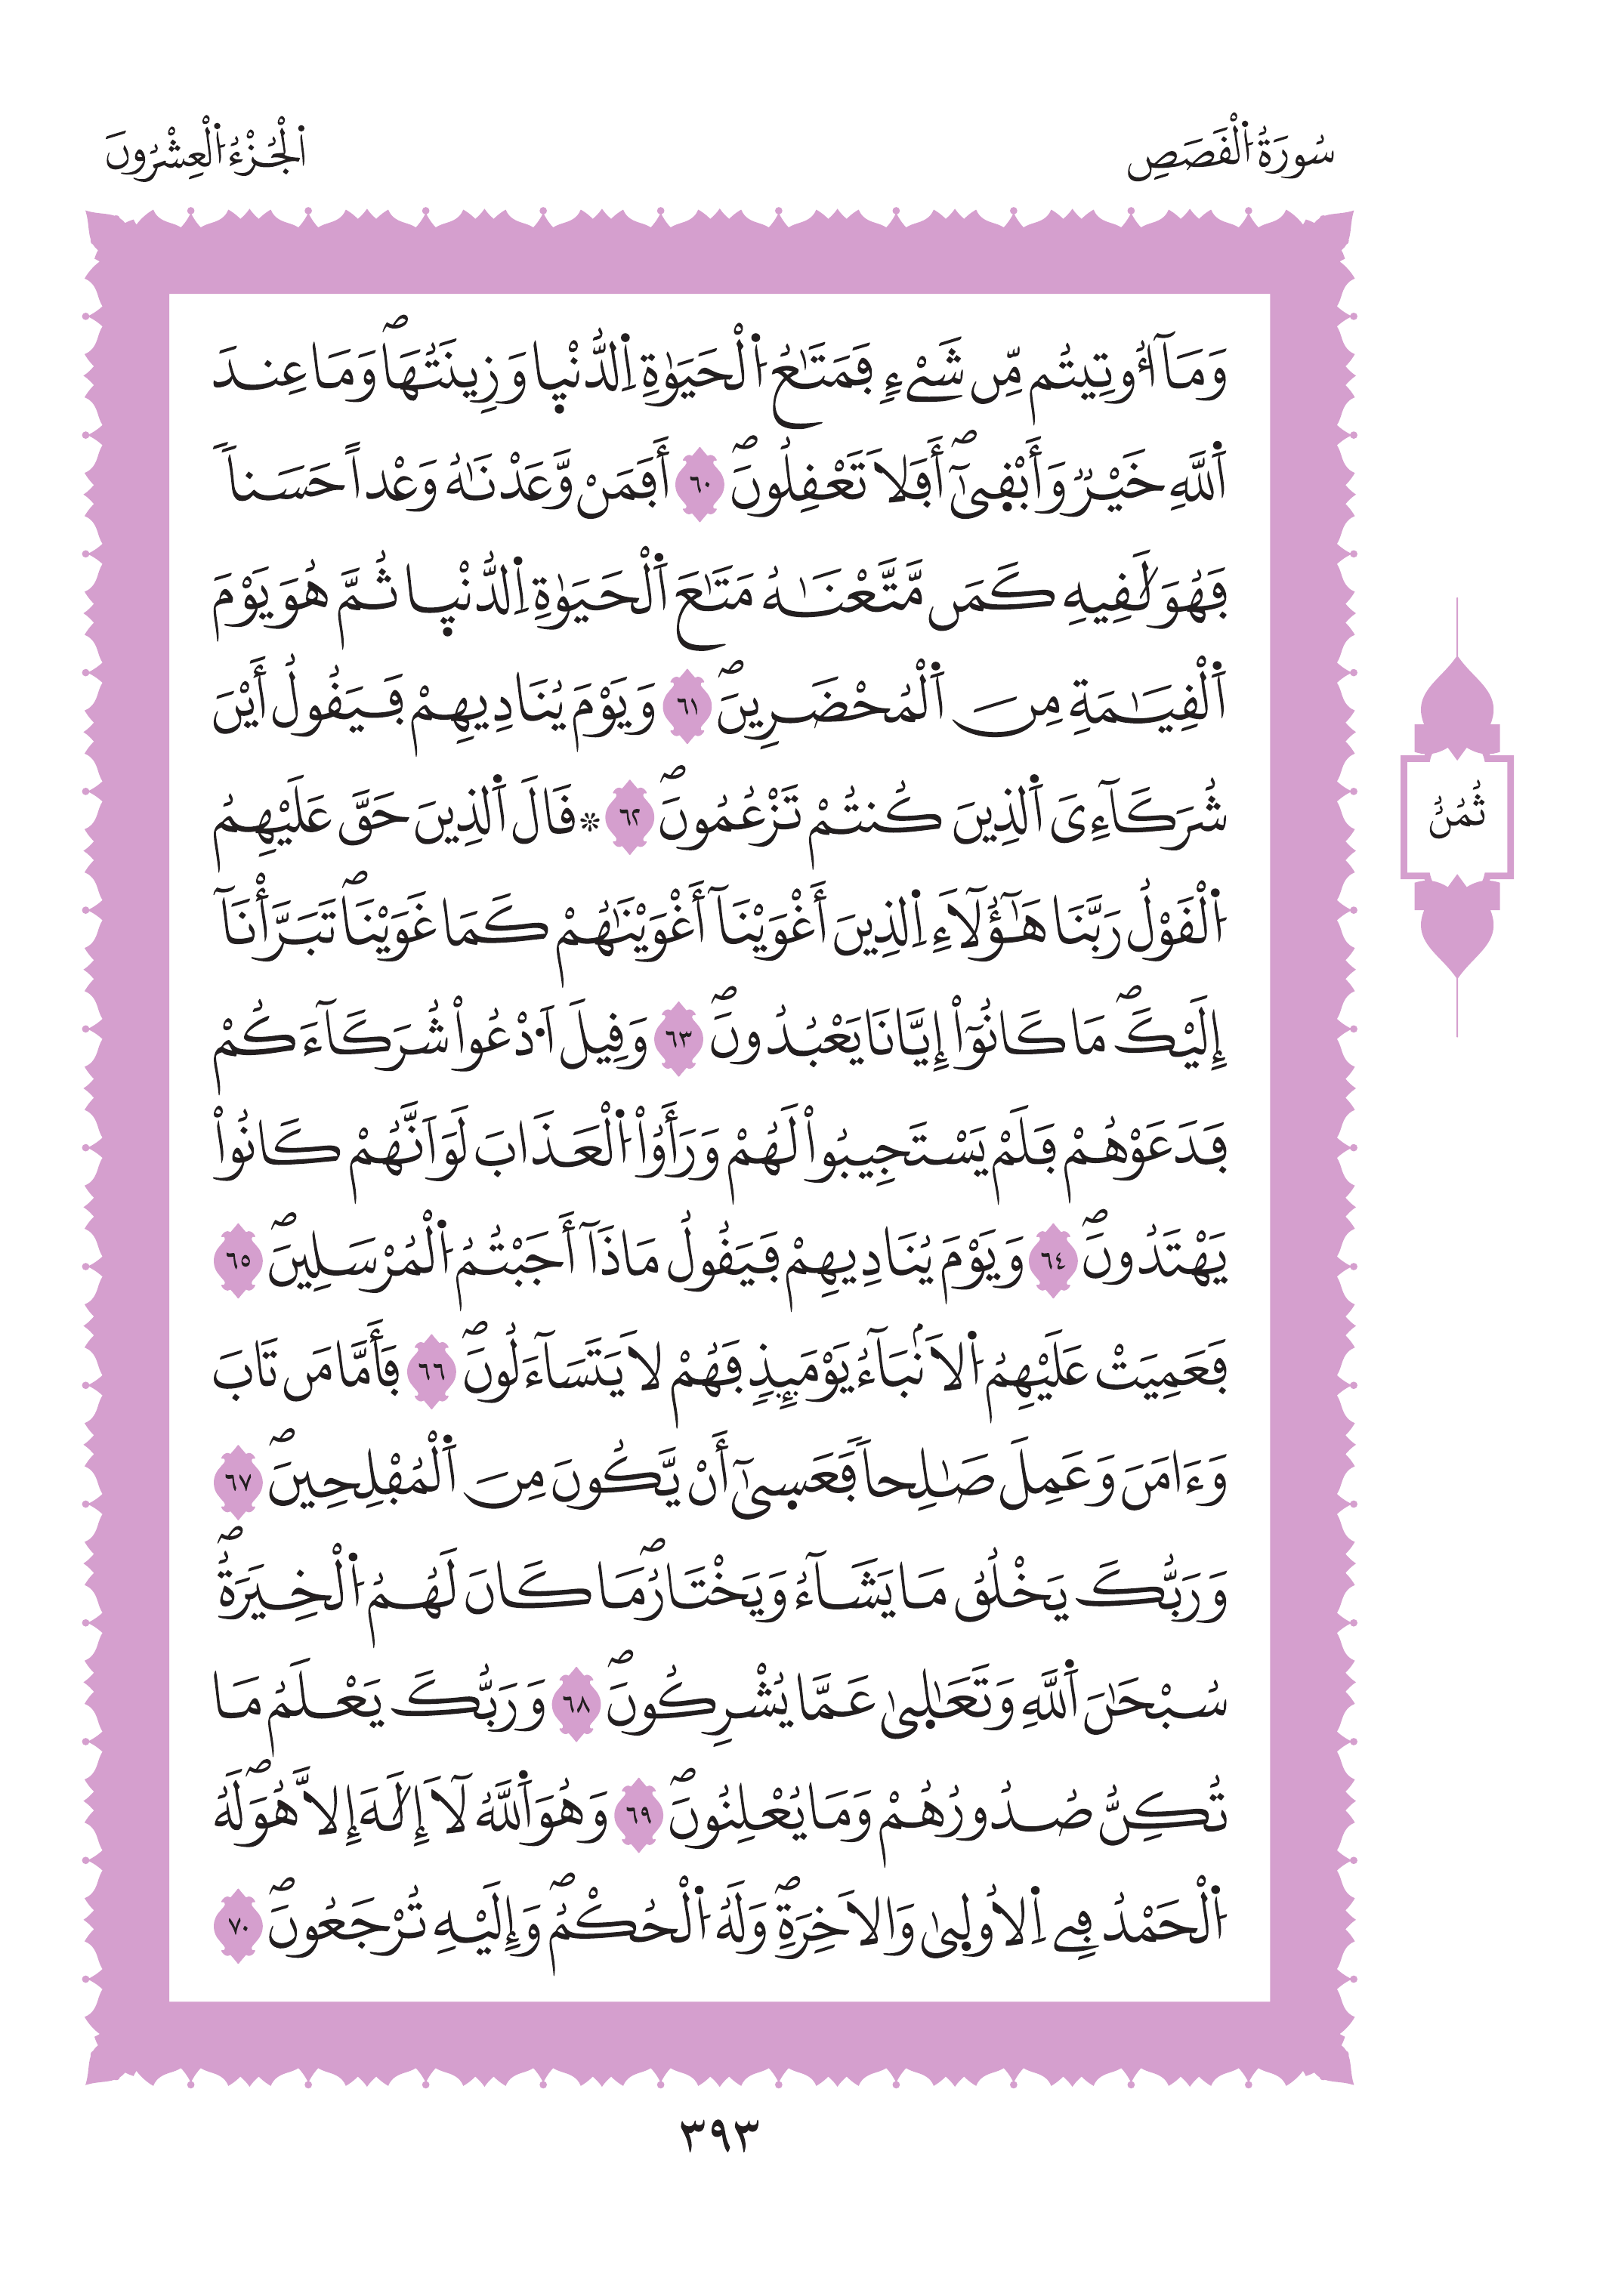 سُورَةُ اُ۬لْقَصَصِ
اَ۬لْجُزْءُ اُ۬لْعِشْرُونَ
وَمَآ أُوتِيتُم مِّن شَےْءٖ فَمَتَٰعُ اُ۬لْحَيَوٰةِ اِ۬لدُّنْي۪ا وَزِينَتُهَاۖ وَمَا عِندَ
اَ۬للَّهِ خَيْرٞ وَأَبْق۪ىٰٓۖ أَفَلَا تَعْقِلُونَۖ ٦٠ أَفَمَنْ وَّعَدْنَٰهُ وَعْداً حَسَناٗ
فَهُوَ لَٰقِيهِ كَمَن مَّتَّعْنَٰهُ مَتَٰعَ اَ۬لْحَيَوٰةِ اِ۬لدُّنْي۪ا ثُمَّ هُوَ يَوْمَ
اَ۬لْقِيَٰمَةِ مِنَ اَ۬لْمُحْضَرِينَۖ ٦١ وَيَوْمَ يُنَادِيهِمْ فَيَقُولُ أَيْنَ
شُرَكَآءِيَ اَ۬لذِينَ كُنتُمْ تَزْعُمُونَۖ ٦٢ * قَالَ اَ۬لذِينَ حَقَّ عَلَيْهِمُ
ثُمُنُ
اُ۬لْقَوْلُ رَبَّنَا هَٰٓؤُلَآءِ اِ۬لذِينَ أَغْوَيْنَآ أَغْوَيْنَٰهُمْ كَمَا غَوَيْنَاۖ تَبَرَّأْنَآ
إِلَيْكَۖ مَا كَانُوٓاْ إِيَّانَا يَعْبُدُونَۖ ٦٣ وَقِيلَ اَ۟دْعُواْ شُرَكَآءَكُمْ
فَدَعَوْهُمْ فَلَمْ يَسْتَجِيبُواْ لَهُمْ وَرَأَوُاْ اُ۬لْعَذَابَ لَوَ اَنَّهُمْ كَانُواْ
يَهْتَدُونَۖ ٦٤ وَيَوْمَ يُنَادِيهِمْ فَيَقُولُ مَاذَآ أَجَبْتُمُ اُ۬لْمُرْسَلِينَۖ ٦٥
فَعَمِيَتْ عَلَيْهِمُ اُ۬لَانۢبَآءُ يَوْمَئِذٖ فَهُمْ لَا يَتَسَآءَلُونَۖ ٦٦ فَأَمَّا مَن تَابَ
وَءَامَنَ وَعَمِلَ صَٰلِحاٗ فَعَس۪ىٰٓ أَنْ يَّكُونَ مِنَ اَ۬لْمُفْلِحِينَۖ ٦٧
وَرَبُّكَ يَخْلُقُ مَا يَشَآءُ وَيَخْتَارُۖ مَا كَانَ لَهُمُ اُ۬لْخِيَرَةُۖ
سُبْحَٰنَ اَ۬للَّهِ وَتَعَٰل۪ىٰ عَمَّا يُشْرِكُونَۖ ٦٨ وَرَبُّكَ يَعْلَمُ مَا
تُكِنُّ صُدُورُهُمْ وَمَا يُعْلِنُونَۖ ٦٩ وَهُوَ اَ۬للَّهُ لَآ إِلَٰهَ إِلَّا هُوَۖ لَهُ
اُ۬لْحَمْدُ فِے اِ۬لُاول۪ىٰ وَالَاخِرَةِۖ وَلَهُ اُ۬لْحُكْمُۖ وَإِلَيْهِ تُرْجَعُونَۖ ٧٠
٣٩٣